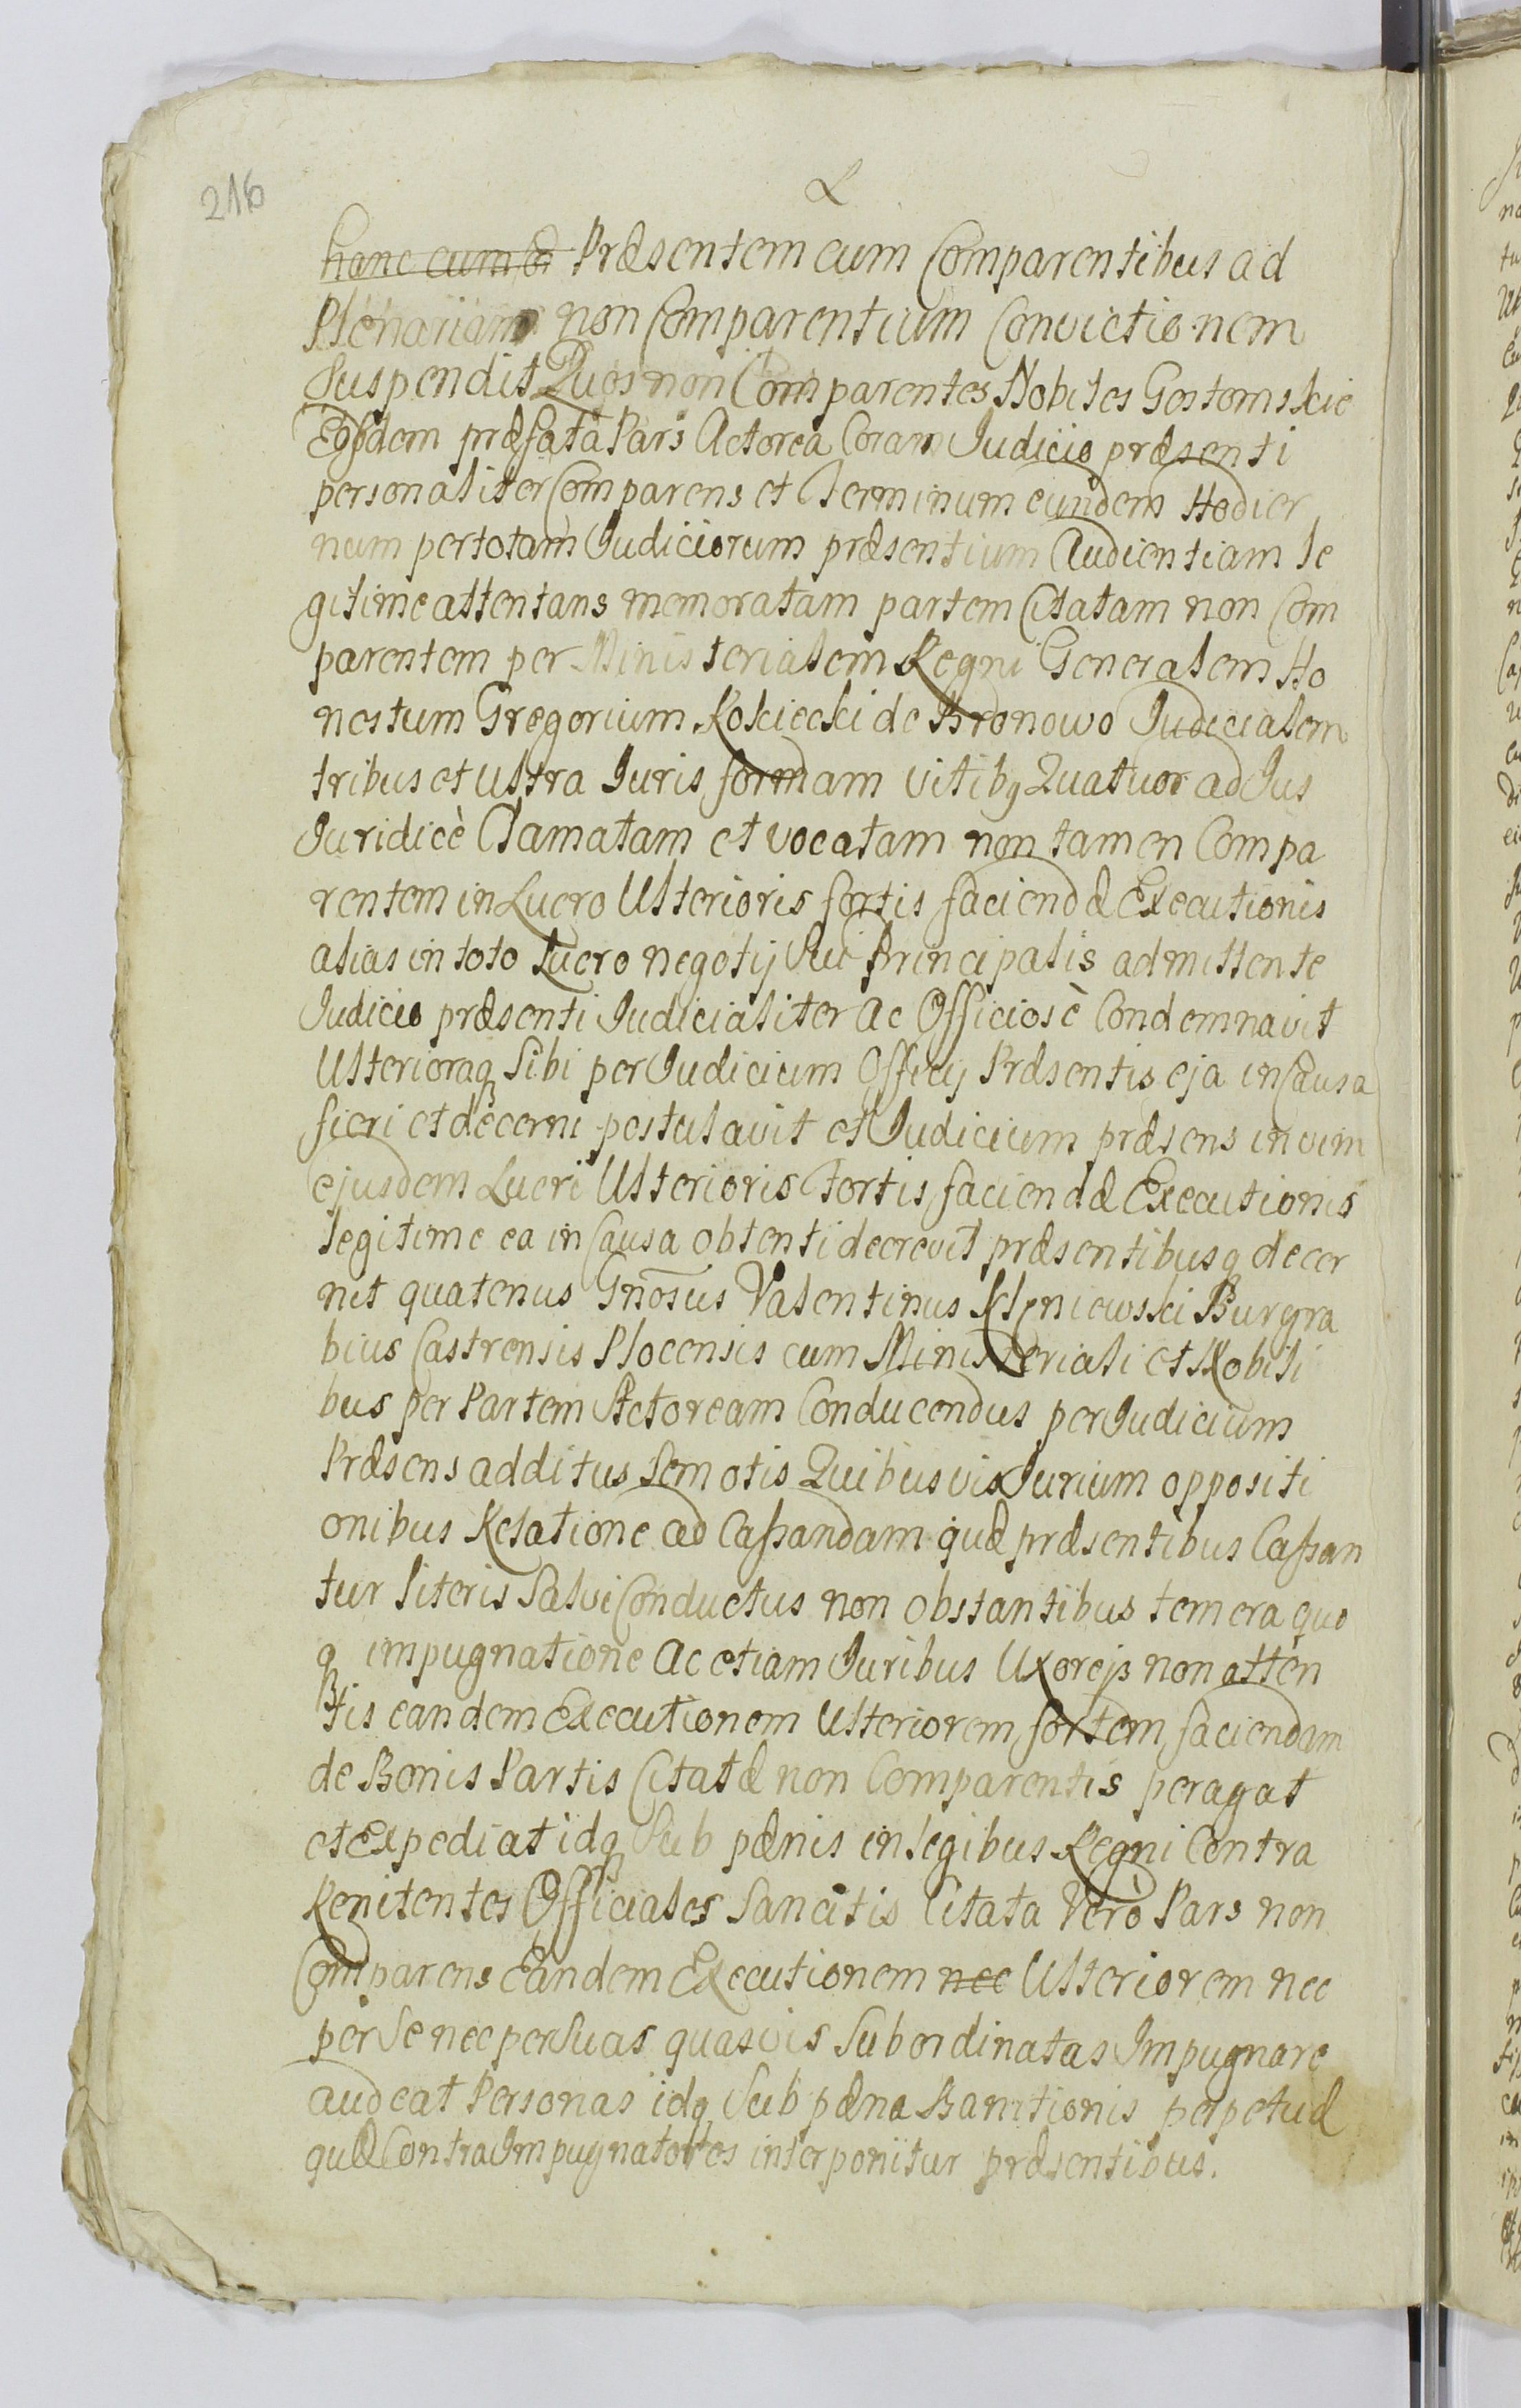 216
L
hanc cum co Præsentem cum Comparentibus ad
Plenariam non Comparentium Convictionem
Suspendit Quos non Comparentes Nobiles Gostomskie
Eosdem præfata Pars Actorea Coram Judicio præsenti
personaliter Comparens et Terminum eundem Hodier
num per totam Judiciorum præsentium Audientiam le
gitime attentans memoratam partem Citatam non Com
parentem per Ministerialem Regni Generalem Ho
nestum Gregorium Kokiecki de Bronowo Judicialem
tribus et Ultra Juris formam vitibq Quatuor ad Jus
Juridicè Clamatam et vocatam non tamen Compa
rentem in Lucro Ulterioris fortis faciendæ Executionis
alias in toto Lucro negotij Sui Principalis admittente
Judicio præsenti Judicialiter ac Officiosè Condemnavit
Ulterioraq Sibi per Judicium Officij Præsentis eja in Causa
fieri et decerni postulavit et Judicium præsens in vim
ejusdem Lucri Ulterioris fortis faciendæ Executionis
legitime ea in Causa obtenti decrevit præsentibusq decer
nit quatenus Gnosus Valentinus Klyniewski Burgra
bius Castrensis Plocensis cum Ministeriali et Nobili
bus per Partem Actoream Conducendus per Judicium
Præsens additus Semotis Quibusvis Jurium oppositi
onibus Relatione ad Cassandam quæ præsentibus Cassan
tur literis Salvi Conductus non obstantibus temera quo
q impugnatione ac etiam Juribus Uxoreis non atten
tis eandem Executionem Ulteriorem fortem faciendam
de Bonis Partis Citatæ non Comparentis peragat
et Expediat idq Sub pænis in legibus Regni Contra
Renitentes Officiales Sancitis Citata Verò Pars non
Comparens Eandem Executionem nec Ulteriorem nec
per Se nec per Suas quasvis Subordinatas Impugnare
audeat Personas idq Sub pæna Banitionis perpetuæ
quæ Contra Impugnatores interponitur præsentibus.